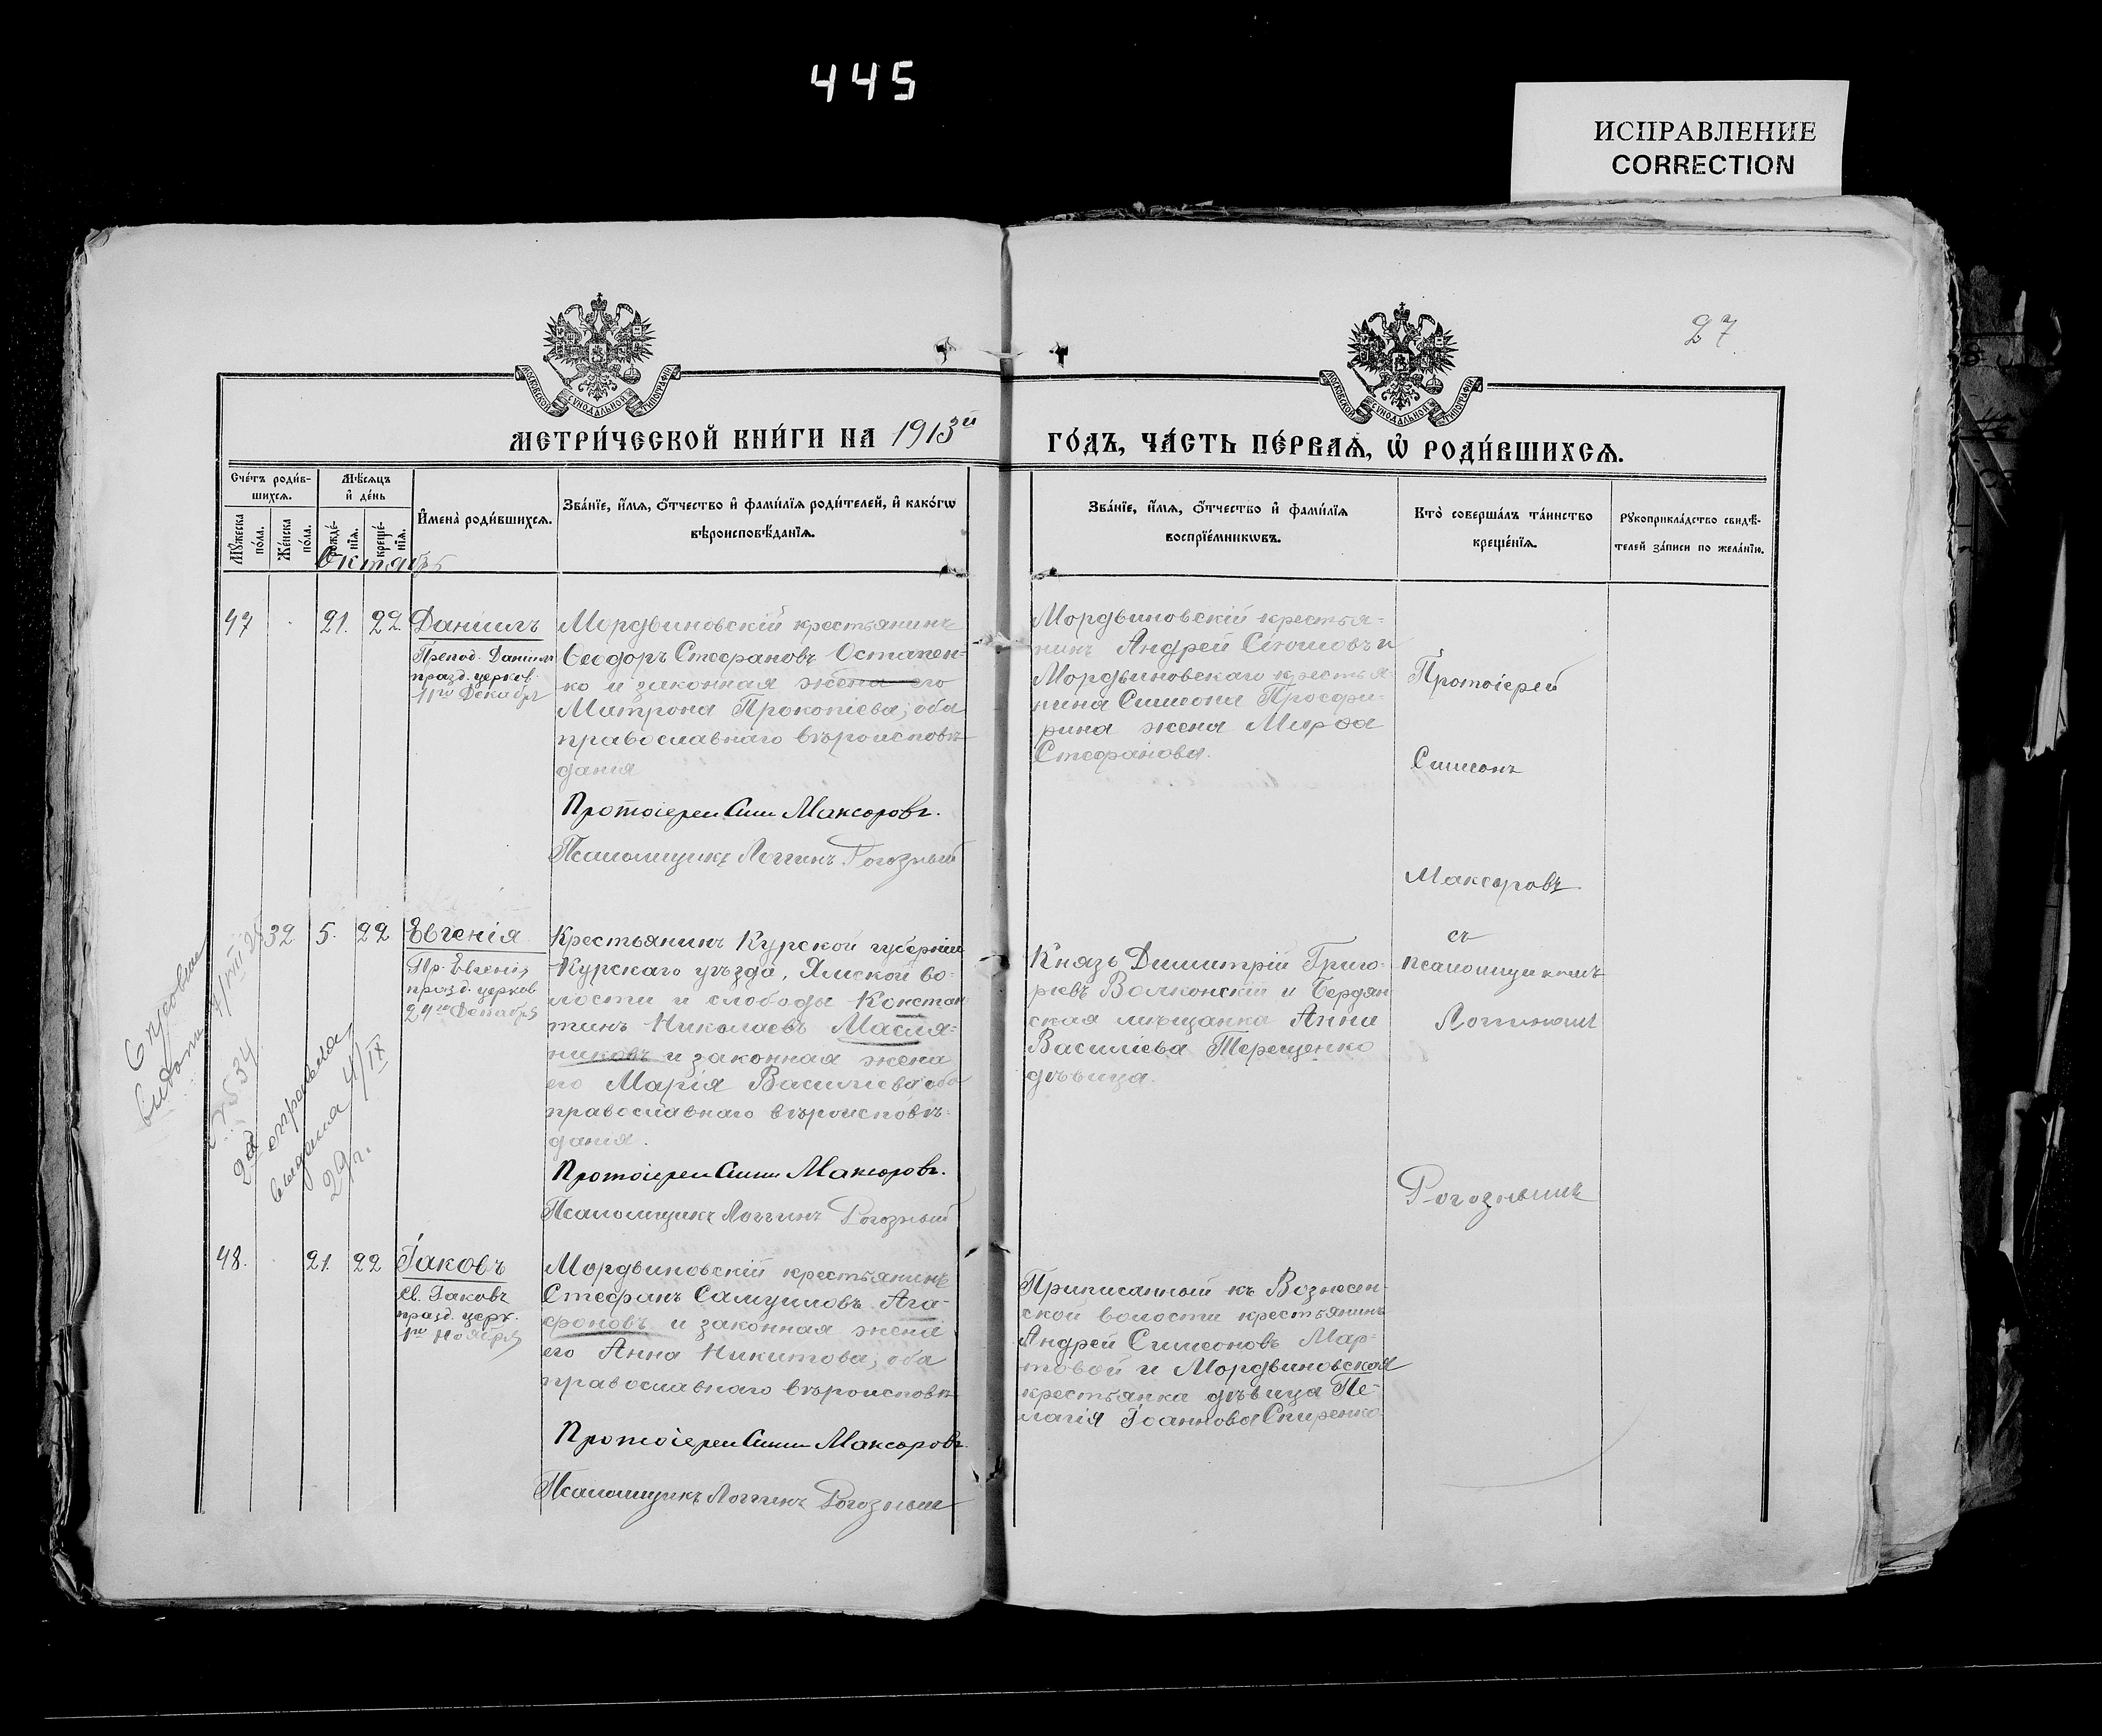 445
ИСПРАВЛЕНИЕ
CORRECTION
27
МОСКОВСКОЙ СѴНОДАЛЬНОЙ ТИПОГРАФІИ
МОСКОВСКОЙ СѴНОДАЛЬНОЙ ТИПОГРАФІИ
МЕТРИ́ЧЕСКОЙ КНИ́ГИ НА 1913й
ГО́ДЪ, ЧА́СТЬ ПЕ́РВАѦ, Ѽ РОДИ́ВШИХСѦ.
Сче́тъ роди́в-
шихсѧ.
Мѣ́сѧцъ
и҆ де́нь
Мꙋ́жеска
по́ла.
Же́нска
по́ла.
рожде́-
нїѧ.
креще́-
нїѧ.
И҆мена̀ роди́вшихсѧ.
Зва́нїе, и҆́мѧ, ѻ҆́тчество и҆ фами́лїѧ роди́телей, и҆ како́гѡ
вѣроисповѣ́данїѧ.
Зва́нїе, и҆́мѧ, ѻ҆́тчество и҆ фами́лїѧ
воспрїе́мникѡвъ.
Кто̀ соверша́лъ та́инство
креще́нїѧ.
Рꙋкоприкла́дство свидѣ́-
телей за́писи по жела́нїю.
Октябрь
47
21.
22
Даніилъ
Препод. Даніилъ
празд. церков.
11го Декабря
Мордвиновскій крестьянинъ
Ѳеодоръ Стефановъ Остапен-
ко и законная жена его
Матрона Прокопіева; оба
православнаго вѣроисповѣ-
данія
Протоіерей Сим Максоровъ.
Псаломщикъ Логгинъ Рогозный
Мордвиновскій крестья-
нинъ Андрей и
Мордвиновскаго крестья-
нина Симеона
рина жена Марѳа
Стефанова.
Протоіерей
Симеонъ
Максоровъ
съ
псаломщикомъ
Логгиномъ
Рогознымъ
32
5.
22
Евгенія
Пр. Евгенія
празд. церков
24го Декабря
Крестьянинъ Курской губерніи
Курскаго уѣзда, Ямской во-
лости и слободы Констан
тинъ Николаевъ Масля-
никовъ и законная жена
его Марія Василіева оба
православнаго вѣроисповѣ-
данія.
Протоіерей Сим Максоровъ.
Псаломщикъ Логгинъ Рогозный
Князь Димитрій Григо-
ріевъ Волконскій и Бердян
ская мѣщанка Анна
Василіева Терещенко
дѣвица.
выдана
2534
2я
выдана 4/IX
29г.
48.
21.
22
Іаковъ
Св. Іаковъ
празд. церк.
1го Ноября
Мордвиновскій крестьянинъ
Стефанъ Самуиловъ Ага-
фоновъ и законная жена
его Анна Никитова; оба
православнаго вѣроисповѣ
Протоіерей Сим Максоровъ.
Псаломщикъ Логгинъ Рогозный
Приписанный къ Вознесен-
ской волости крестьянинъ
Андрей Симеоновъ Мар-
товой и Мордвиновская
крестьянка дѣвица Пе-
лагія Іоаннова Спиренко